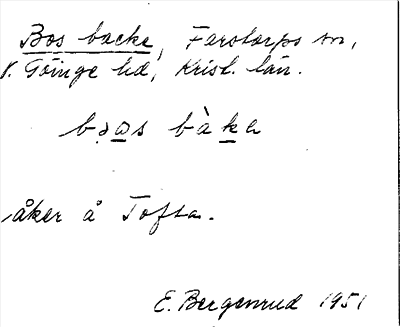 Bos backe, Farstorps sn,
V. Göinge hd, Krist. län.
bɔas bàka
åker å Tofta.
E. Bergenrud 1951